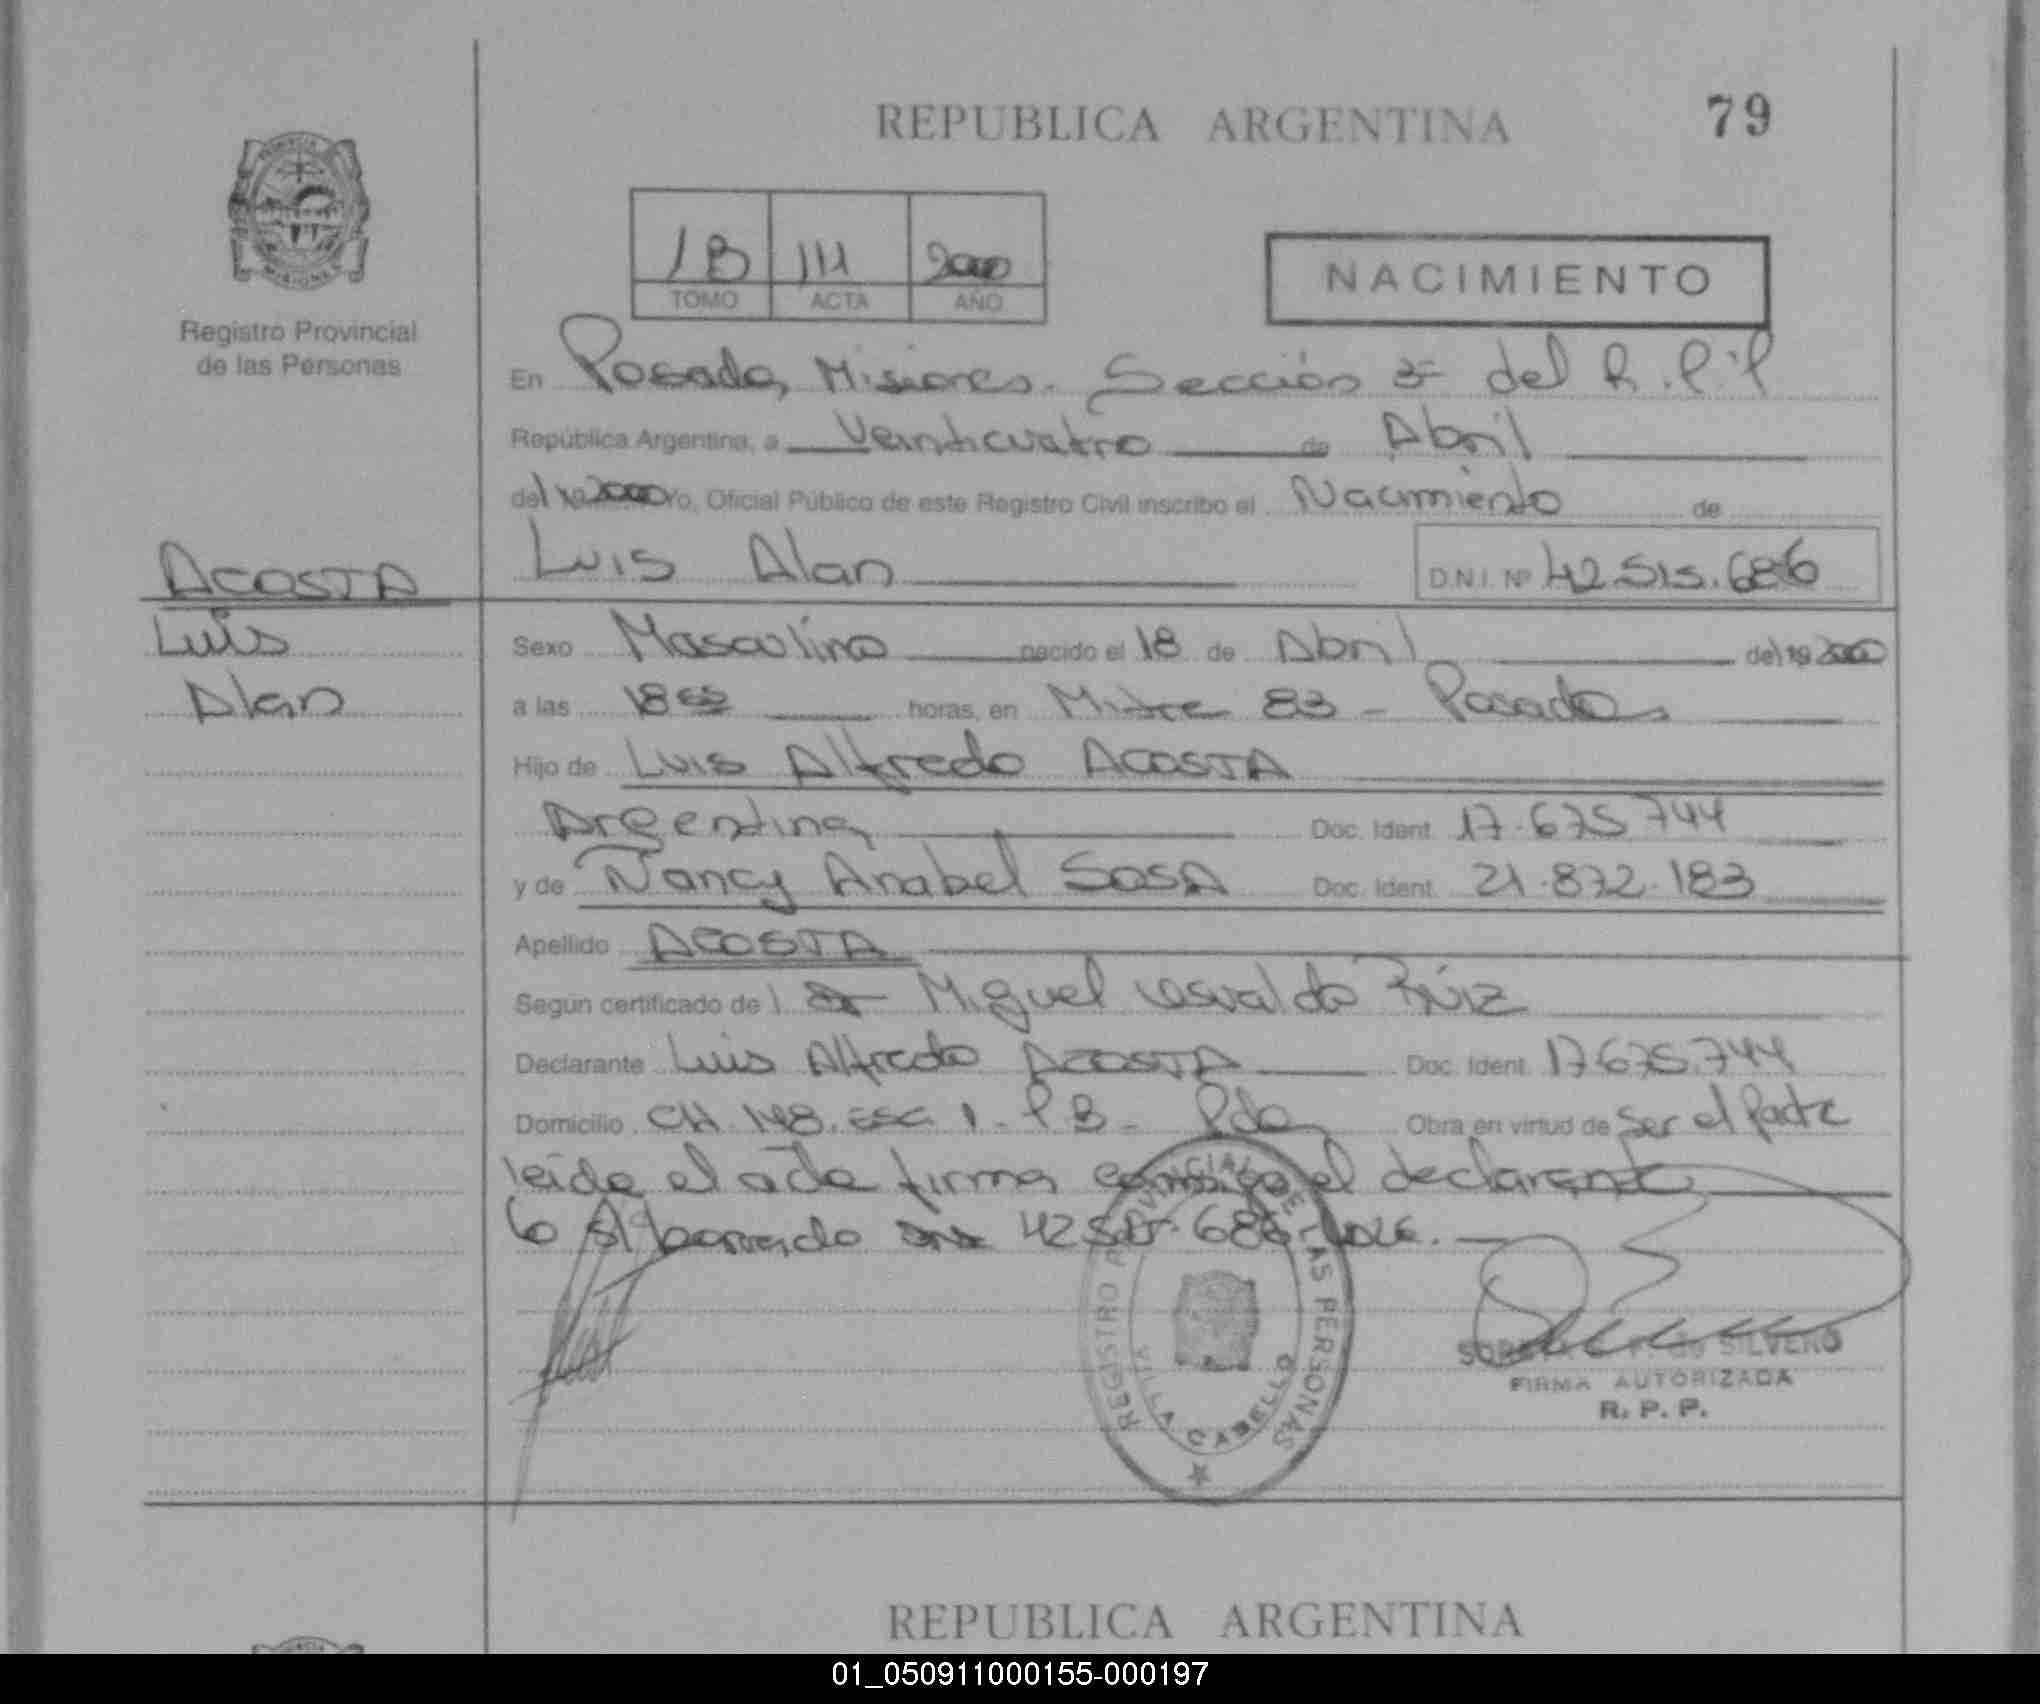 REPUBLICA ARGENTINA
79
1B 111 2000
TOMO ACTA AÑO
NACIMIENTO
Registro Provincial
de las Personas
En Posadas, Misiones. Sección 3ª del R.P.P
República Argentina, a Veinticuatro de Abril
del 19 2000 yo, Oficial Público de este Registro Civil inscribo el Nacimiento de
Luis Alan D.N.I. Nº 42.515.686
ACOSTA
Luis
Alan
Sexo Masculino nacido el 18 de Abril del 19 2000
a las 18 horas, en Mitre 83 - Posadas
Hijo de Luis Alfredo ACOSTA
Argentina Doc. Ident. 17.675.744
y de Nancy Anabel SOSA Doc. Ident. 21.872.183
Apellido ACOSTA
Según certificado de l Miguel Osvaldo Rúiz
Declarante Luis Alfredo ACOSTA Doc. Ident. 17.675.744
Domicilio CH. 148. esc 1 - PB - Pdas Obra en virtud de Ser el padre
leida el acta firma conmigo el declarante
lo S/borrado 42.515.686 vale.
REGISTRO PROVINCIAL DE LAS PERSONAS
VILLA CABELLO
SILVERO
FIRMA AUTORIZADA
R. P. P.
REPUBLICA ARGENTINA
01_050911000155-000197